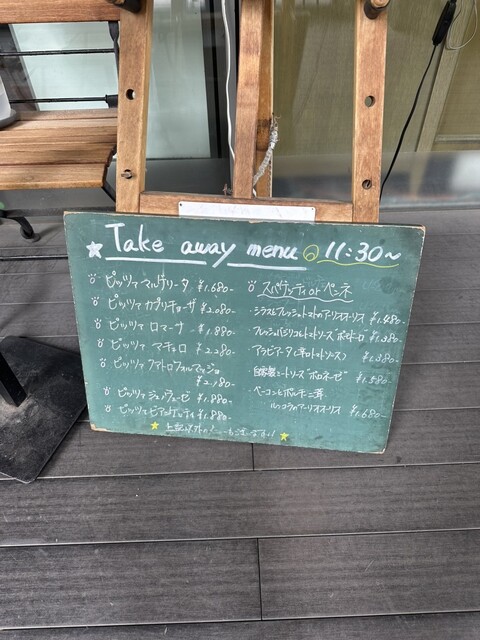 Take away menu 11:30~
ピッツァ マルゲリータ ¥1.680-
ピッツァ カプリチョーザ ¥2.080-
ピッツァ ロマーナ ¥1.880-
ピッツァ マチェロ ¥2.280-
ピッツァ クアトロフォルマッジョ
¥2.180-
ピッツァ ジェノヴェーゼ ¥1.880-
ピッツァ ビアンケッティ ¥1.880-
スパゲッティ or ペンネ
シラスとフレッシュトマトのアーリオオーリオ ¥1.480-
フレッシュバジリコとトマトソース ¥1.380-
アラビアータ(辛口トマトソース)
¥1.380-
自家製ミートソース"ボロネーゼ" ¥1.580-
ベーコンとポルチーニ茸
アーリオオーリオ ¥1.680-
上記以外のメニューもございます!!